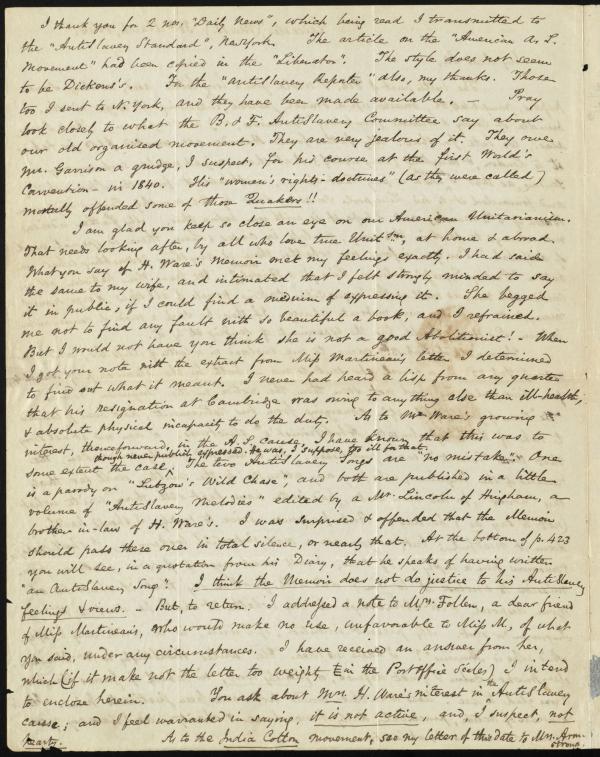 I thank you for 2 nos. "Daily News", which being read I transmitted to
the "AntiSlavery Standard", New York. The article on the "American A. S.
Movement" had been copied in the "Liberator". The style does not seem
to be Dickens's. For the "AntiSlavery Reporter" also, my thanks. Those
too I sent to N. York, and they have been made available. — Pray
look closely to what the B. & F. AntiSlavery Committee say about
our old organised movement. They are very jealous of it. They owe
Mr. Garrison a grudge, I suspect, for his course at the first World's
Convention - in 1840. His "women's rights-doctrines" (as they were called)
mortally offended some of those Quakers!!
I am glad you keep so close an eye on our American Unitarianism.
That needs looking after, by all who love true Unitsm, at home & abroad.
What you say of H. Ware's Memoir met my feelings exactly. I had said
the same to my wife, and intimated that I felt strongly minded to say
it in public, if I could find a medium of expressing it. She begged
me not to find any fault with so beautiful a book, and I refrained.
But I would not have you think she is not a good Abolitionist! - When
I got your note with the extract from Miss Martineau's letter I determined
to find out what it meant. I never had heard a lisp from any quarter
that his resignation at Cambridge was owing to anything else than ill-health,
& absolute physical incapacity to do the duty. As to Mr Ware's growing
interest, thenceforward, in the A. S. cause, I have known that this was to
though never publicly expressed. He was, I suppose, too ill for that.
some extent the case. The two AntiSlavery Songs are "no mistake". One
is a parody on "Lutzow's Wild Chase", and both are published in a little
volume of "AntiSlavery Melodies" edited by a Mr. Lincoln of Hingham, a
brother-in-law of H. Ware's. I was surprised & offended that the Memoir
should pass these over in total silence, or nearly that. At the bottom of p. 423
you will see, in a quotation from his Diary, that he speaks of having written
"an AntiSlavery Song". I think the Memoir does not do justice to his AntiSlavery
feelings & views. - But, to return. I addressed a note to Mrs. Follen, a dear friend
of Miss Martineau's, who would make no use, unfavorable to Miss M, of what
you said, under any circumstances. I have received an answer from her,
which (if it make not the letter too weighty in the Post Office Scales) I intend
to enclose herein. You ask about Mrs. H. Ware's interest in the AntiSlavery
cause; and I feel warranted in saying, it is not active, and, I suspect, not
hearty. As to the India Cotton movement, see my letter of this date to Mrs. Arm-
strong.